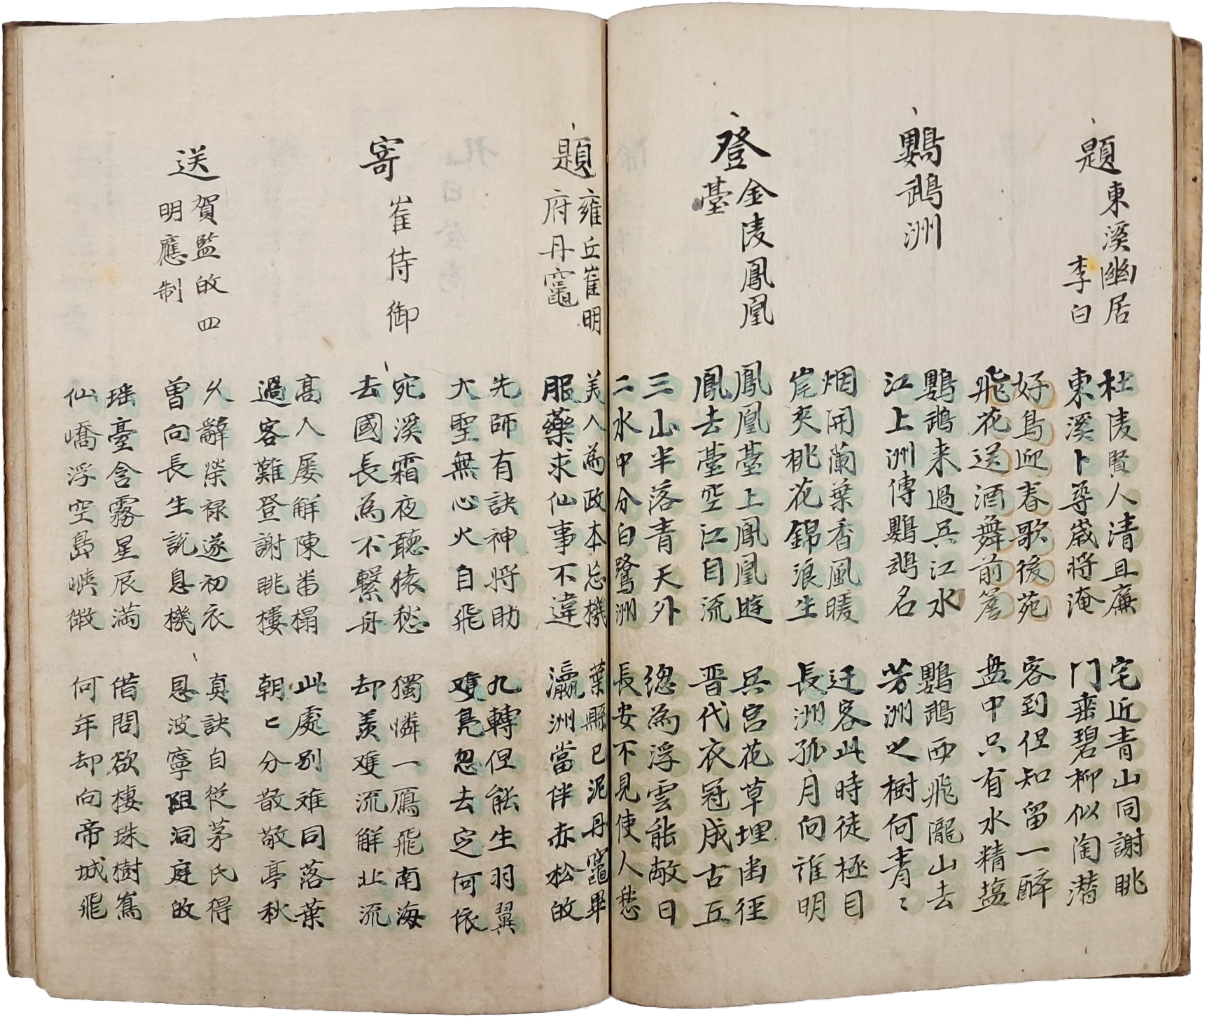 題東溪幽居
李白
杜陵賢人清且廉
東溪卜尋歲將淹
宅近青山同謝眺
門垂碧柳似陶潜
好鳥迎春歌後苑
飛花送酒舞前簷
客到但知留一醉
盘中只有水精塩
鸚鵡洲
鸚鵡来過吳江水
江上洲傳鸚鵡名
鸚鵡西飛瀧山去
芳洲之樹何青〻
烟開蘭葉香風暖
岸夾桃花錦浪生
迁客此時徒極目
長洲孤月向誰明
登金陵鳳凰
臺
鳳凰臺上鳳凰遊
鳳去臺空江自流
吳宫花草埋幽徑
晋代衣冠成古丘
三山半落青天外
二水中分白鷺洲
總為浮雲能敝日
長安不見使人愁
題雍丘崔明
府丹竈
美人為政本忘機
服藥求仙事不違
葉縣已泥丹竈畢
瀛洲當伴赤松皈
先師有訣神将助
大聖無心火自飛
九轉但能生羽翼
雙凫忽去定何依
寄崔侍御
宛溪霜夜聽猿愁
去國長為不繫舟
獨憐一鴈飛南海
却羨双流解北流
髙人屡解陳蕃榻
過客難登謝眺樓
此處别难同落葉
朝〻分散敬亭秋
送賀監皈四
明應制
久辭榮禄遂初衣
曽向長生説息機
真訣自從茅氏得
恩波寧阻洞庭皈
瑶臺含霧星辰满
仙嶠浮空島嶼微
借問欲棲珠樹寉
何年却向帝城飛